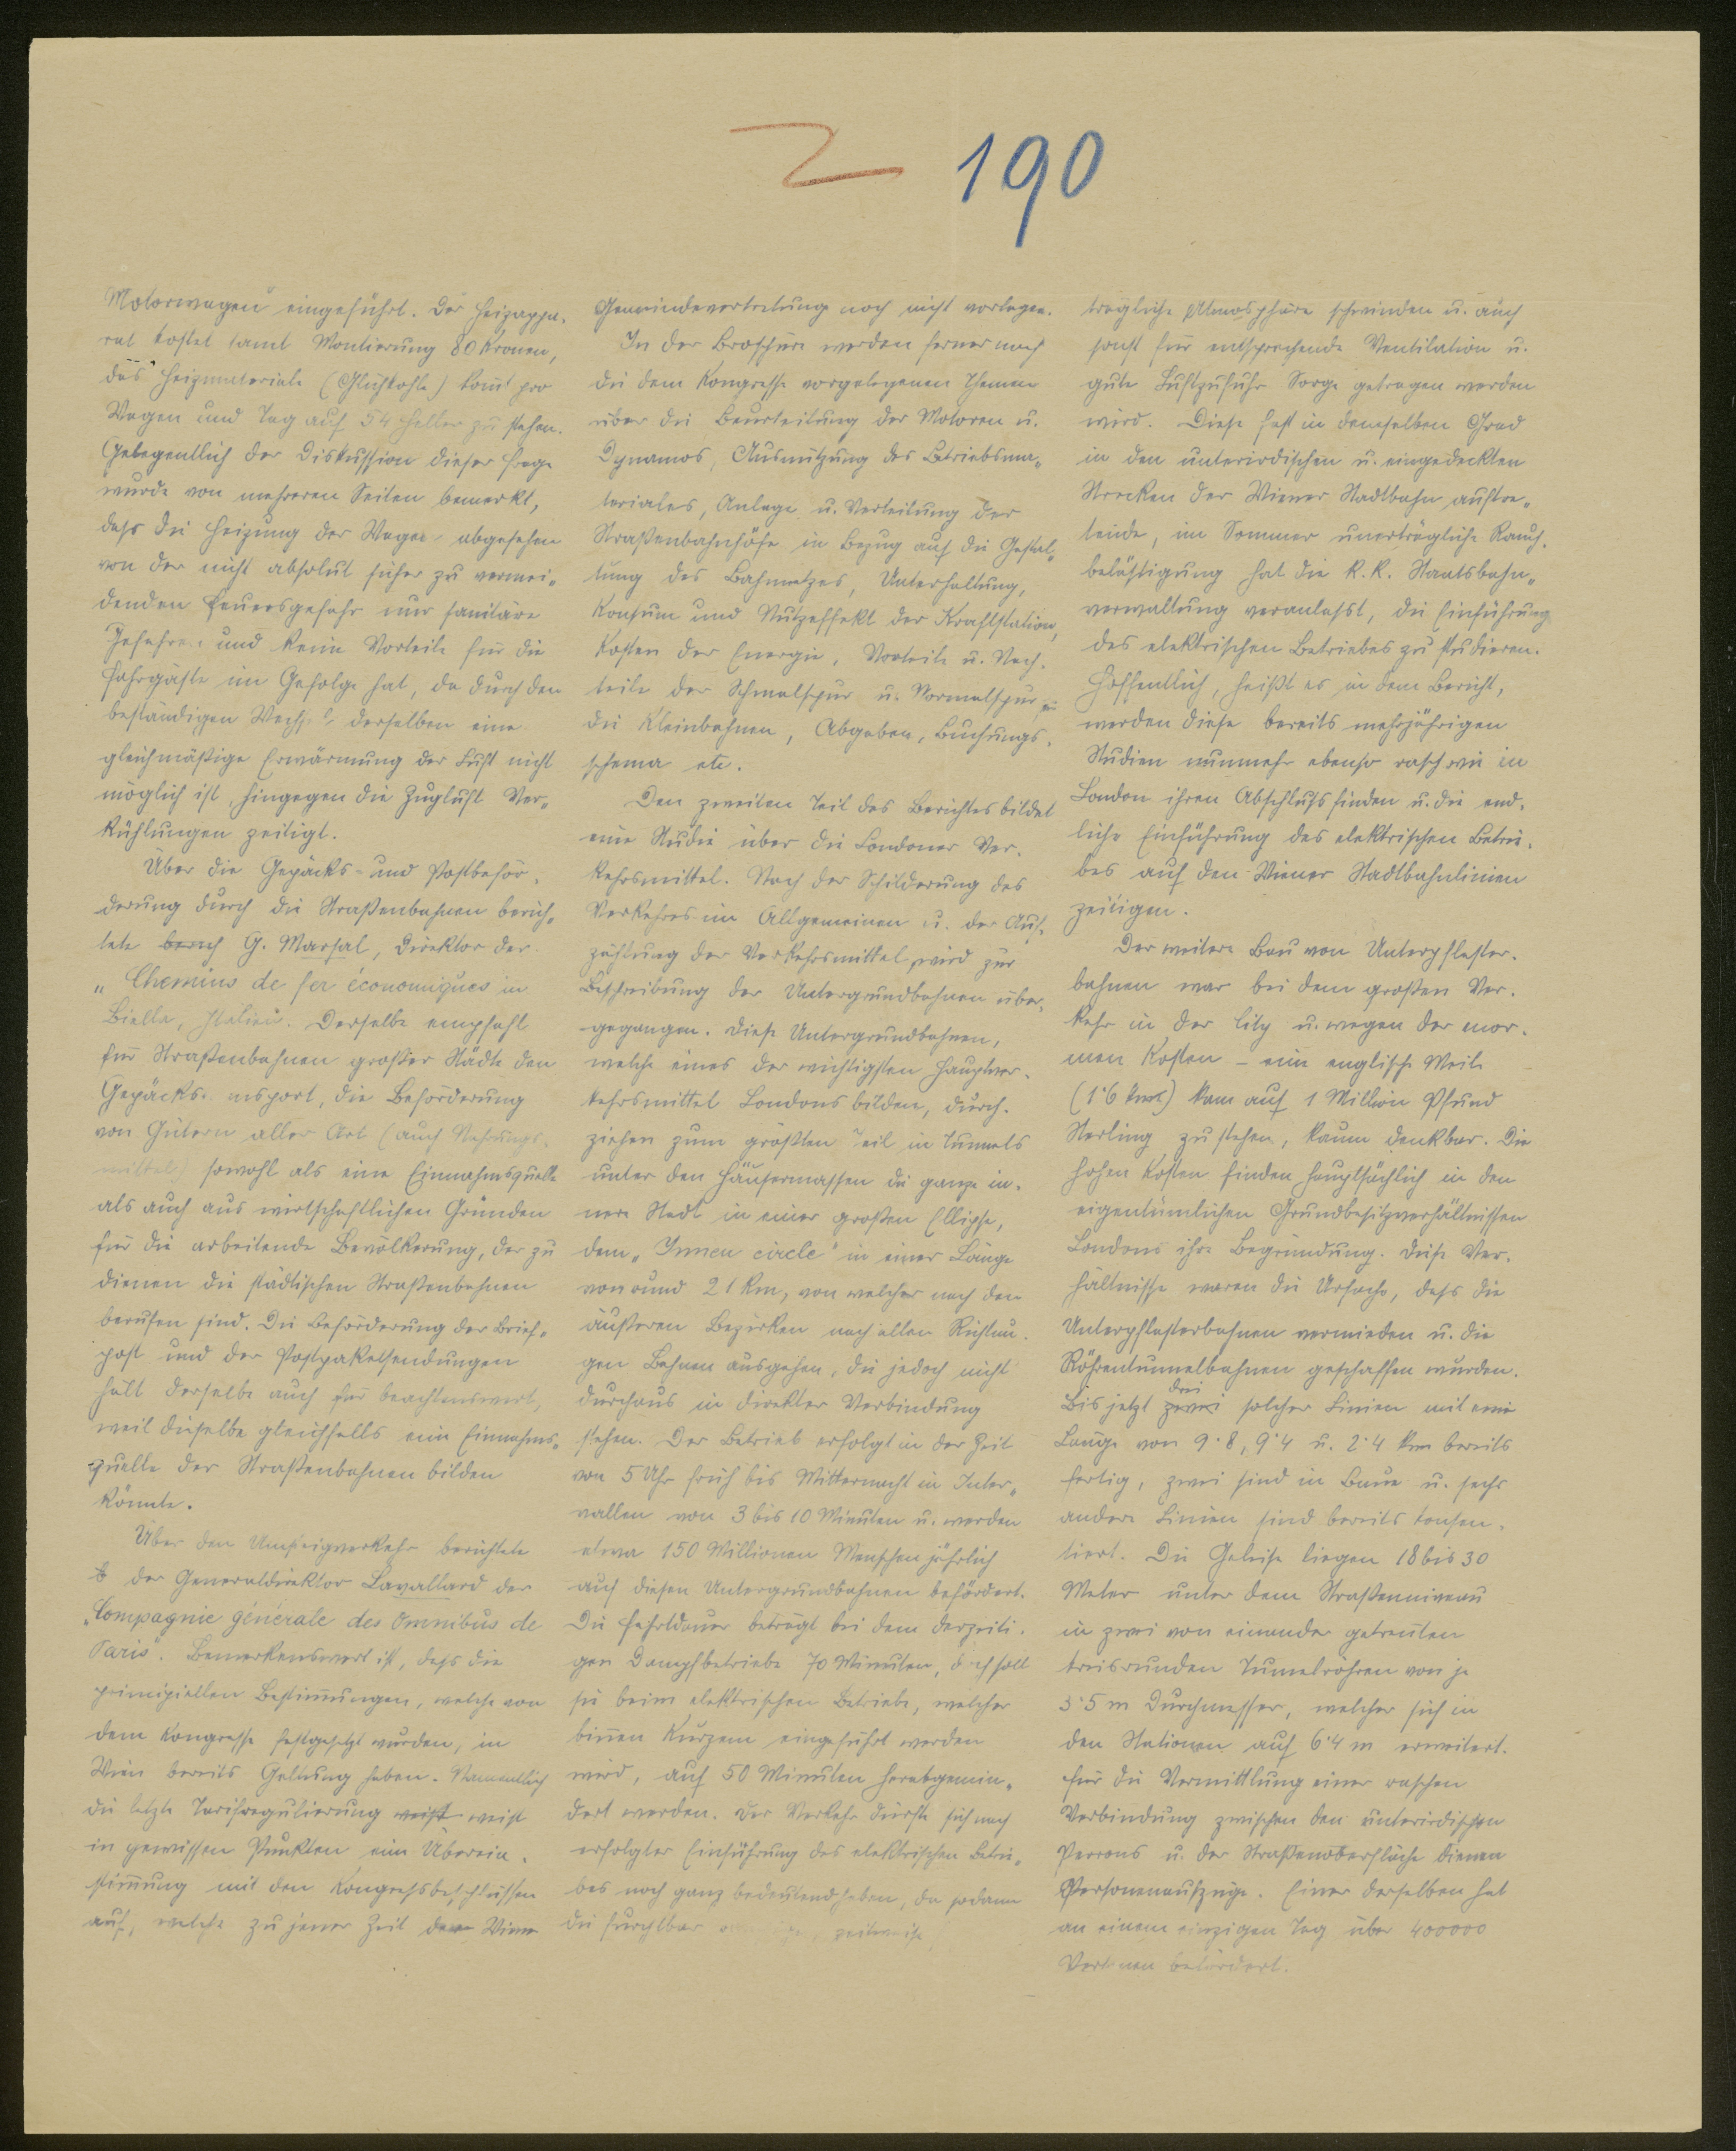 190
Motorwagen eingeführt. Der Heizappa-
rat kostet samt Montierung 80 Kronen,
das Heizmateriale (Glühkohle) komt pro
Wagen und Tag auf 54 Heller zu stehen.
Gelegentlich der Diskussion dieser Frage
wurde von mehreren Seiten bemerkt,
dass die Heizung der Wagen abgesehen
von der nicht absolut sicher zu vermei-
denden Feuersgefahr nur sanitäre
Gefahren und keine Vorteile für die
Fahrgäste im Gefolge hat, da durch den
beständigen Wechsel derselben eine
gleichmäßige Erwärmung der Luft nicht
möglich ist, hingegen die Zugluft Ver-
kühlungen zeitigt.
Über die Gepäcks- und Postbeför-
derung durch die Straßenbahnen berich-
tete berich G. Marsal, Direktor der
„Chemins de fer économiques in
Biella, Italien". Derselbe empfahl
für Straßenbahnen großer Städte den
Gepäckstransport, die Beförderung
von Gütern aller Art (auch Nahrungs-
mittel) sowohl als eine Einnahmsquelle
als auch aus wirtschaftlichen Gründen
für die arbeitende Bevölkerung, der zu
dienen die städtischen Straßenbahnen
berufen sind. Die Beförderung der Brief-
post und der Postpaketsendungen
hält derselbe auch für beachtenswert,
weil dieselbe gleichfalls eine Einnahms-
quelle der Straßenbahnen bilden
könnte.
Über den Umsteigverkehr berichtete
der Generaldirektor Lavallard der
„Compagnie générale des Omnibus de
Paris". Bemerkenswert ist, dass die
principiellen Bestimungen, welche von
dem Kongresse festgesetzt wurden, in
Wien bereits Geltung haben. Namentlich
die letzte Tarifregulierung weist weist
in gewissen Punkten eine Überein-
stimung mit den Kongressbeschlüssen
auf, welche zu jener Zeit der Wiener
Gemeindevertretung noch nicht vorlagen.
In der Broschüre werden ferner noch
die dem Kongresse vorgelegenen Themen
über die Beurteilung der Motoren u.
Dynamos, Ausnützung des Betriebsma-
teriales, Anlage u. Verteilung der
Straßenbahnhöfe in Bezug auf die Gestal-
tung des Bahnnetzes, Unterhaltung,
Konsum und Nutzeffekt der Kraftstation,
Kosten der Energie, Vorteile u. Nach-
teile der Schmalspur u. Normalspur,
die Kleinbahnen, Abgaben, Buchungs-
schema etc.
Den zweiten Teil des Berichtes bildet
eine Studie über die Londoner Ver-
kehrsmittel. Nach der Schilderung des
Verkehres im Allgemeinen u. der Auf-
zählung der Verkehrsmittel wird zur
Beschreibung der Untergrundbahnen über-
gegangen. Diese Untergrundbahnen,
welche eines der wichtigsten Hauptver-
kehrsmittel Londons bilden, durch-
ziehen zum größten Teil in Tunnels
unter den Häusermassen die ganze in-
nere Stadt in einer großen Ellipse,
dem „Innen circle" in einer Länge
von rund 21 km, von welcher nach den
äußeren Bezirken nach allen Richtun-
gen Bahnen ausgehen, die jedoch nicht
durchaus in direkter Verbindung
stehen. Der Betrieb erfolgt in der Zeit
von 5 Uhr früh bis Mitternacht in Inter-
vallen von 3 bis 10 Minuten u. werden
etwa 150 Millionen Menschen jährlich
auf diesen Untergrundbahnen befördert.
Die Fahrtdauer beträgt bei dem derzeiti-
gen Dampfbetriebe 70 Minuten, doch soll
sie beim elektrischen Betriebe, welcher
binen Kurzem eingeführt werden
wird, auf 50 Minuten herabgemin-
dert werden. Der Verkehr dürfte sich nach
erfolgter Einführung des elektrischen Betrie-
bes noch ganz bedeutend heben, da sodann
die furchtbar zeitweise
trägliche Atmosphäre schwinden u. auch
sonst für entsprechende Ventilation u.
gute Luftzufuhr Sorge getragen werden
wird. Diese fast in demselben Grad
in den unterirdischen u. eingedeckten
Strecken der Wiener Stadtbahn auftre-
tende, im Sommer unerträgliche Rauch-
belästigung hat die k. k. Staatsbahn-
verwaltung veranlasst, die Einführung
des elektrischen Betriebes zu studieren.
Hoffentlich, heißt es in dem Bericht,
werden diese bereits mehrjährigen
Studien nunmehr ebenso rasch wie in
London ihren Abschluss finden u. die end-
liche Einführung des elektrischen Betrie-
bes auf den Wiener Stadtbahnlinien
zeitigen.
Der weitere Bau von Unterpflaster-
bahnen war bei dem großen Ver-
kehr in der City u. wegen der enor-
men Kosten – eine englische Meile
(1·6 km) kam auf 1 Million Pfund
Sterling zu stehen, kaum denkbar. Die
hohen Kosten finden hauptsächlich in den
eigentümlichen Grundbesitzverhältnissen
Londons ihre Begründung. Diese Ver-
hältnisse waren die Ursache, dass die
Unterpflasterbahnen vermieden u. die
Röhrentunnelbahnen geschaffen wurden.
Bis jetzt zwei drei solcher Linien mit eine
Länge von 9·8, 9·4 u. 2·4 km bereits
fertig, zwei sind in Baue u. sechs
andere Linien sind bereits konsen-
tiert. Die Geleise liegen 18 bis 30
Meter unter dem Straßenniveau
in zwei von einander getrenten
kreisrunden Tunnelröhren von je
3·5 m Durchmesser, welcher sich in
den Stationen auf 6·4 m erweitert.
Für die Vermittlung einer raschen
Verbindung zwischen den unterirdischen
Perrons u. der Straßenoberfläche dienen
Personenaufzüge. Einer derselben hat
an einem einzigen Tag über 400000
Personen befördert.